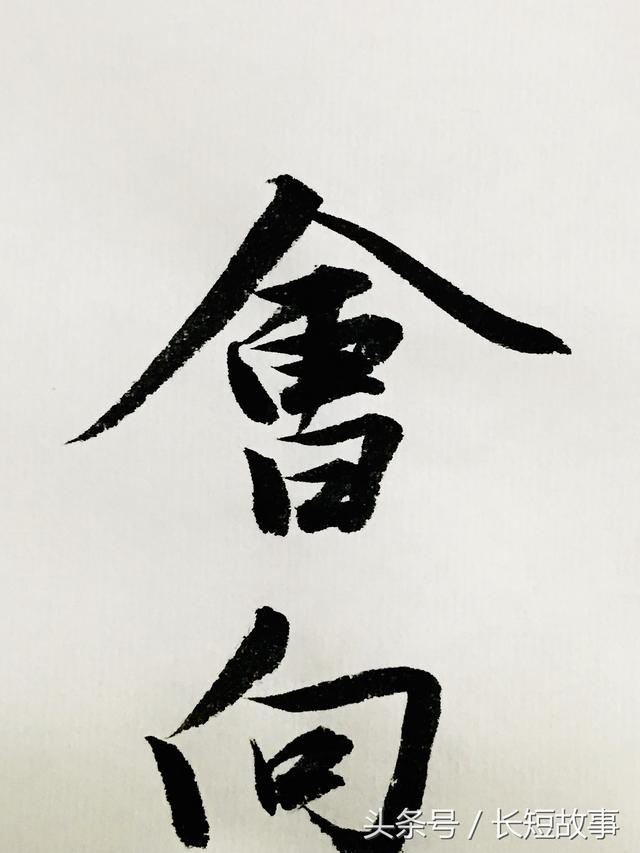 會
向
头条号 / 长短故事